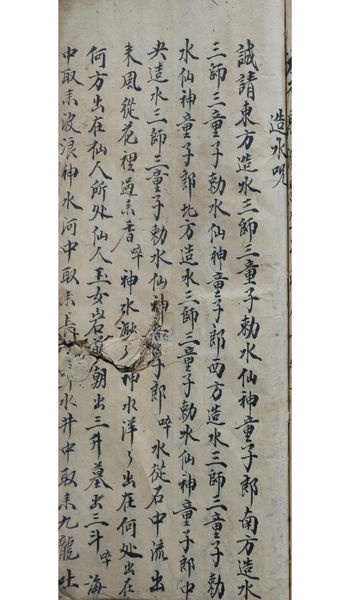 造水咒
誠請東方造水三師三童子勅水仙神童子郎南方造水
三師三童子勅水仙神童子郎西方造水三師三童子勅
水仙神童子郎北方造水三師三童子勅水仙神童子郎中
央造水三師三童子勅水仙神童子郎啐水從石中流出
來風從花裡過來香啐神水漱々神水洋々出在何処出在
何方出在仙人所处仙人玉女岩前朝出三升墓出三斗啐海
中取来波浪神水河中取来長水井中取来九龍吐